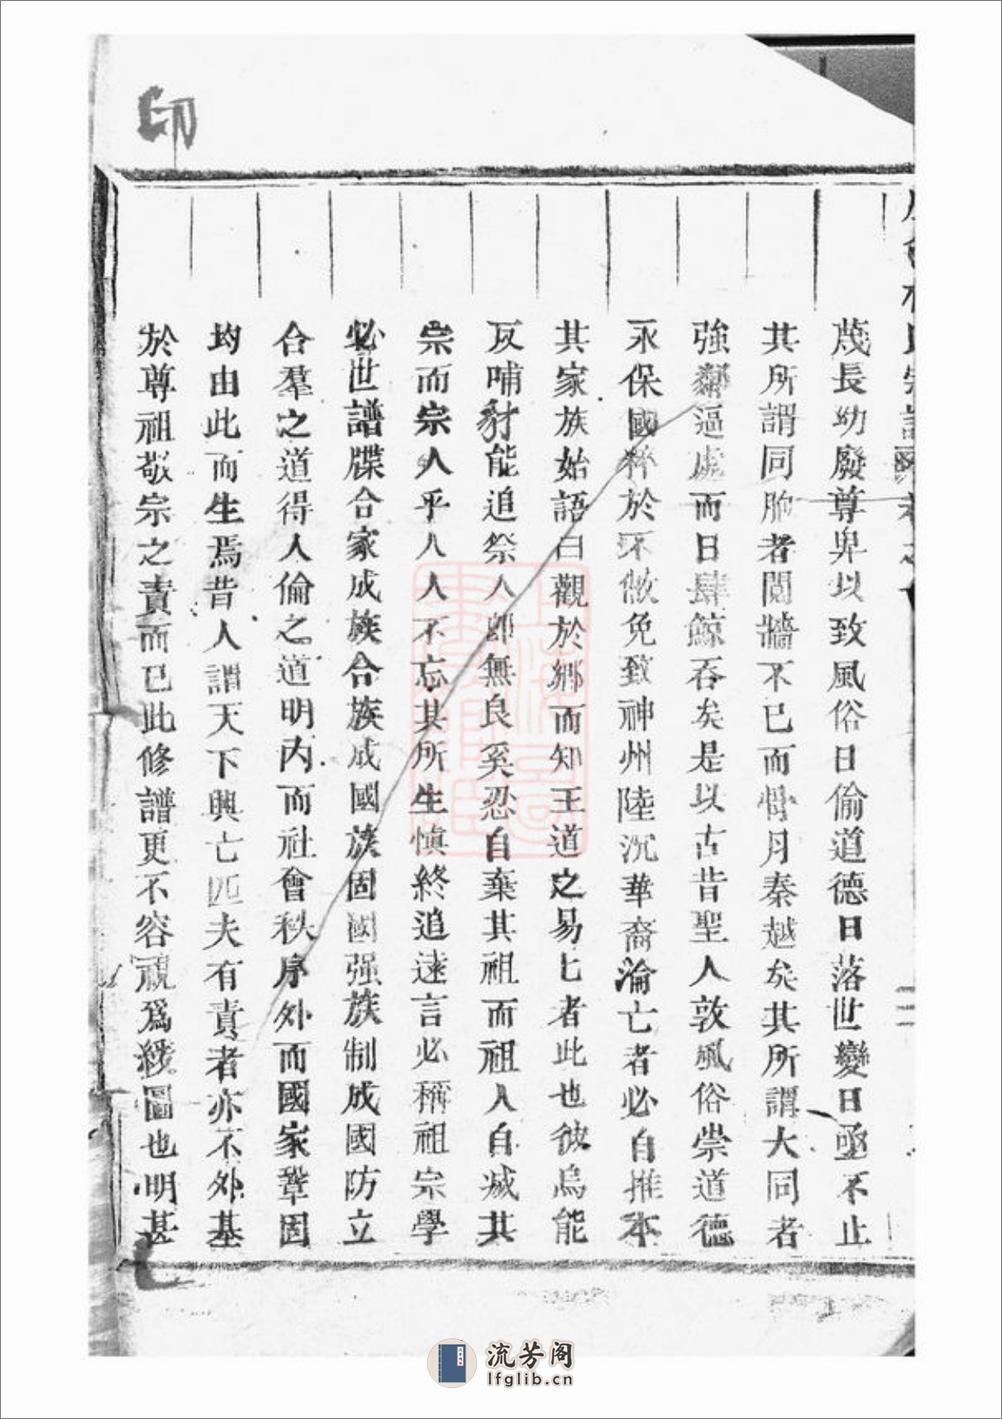 蔑長幼廢尊卑以致風俗日偷道德日落世變日亟不止
其所謂同胞者鬩牆不已而骨月秦越矣其所謂大同者
強鄰逼處而日肆鯨吞矣是以古昔聖人敦風俗崇道德
永保國粹於不敝免致神州陸沉華裔淪亡者必自推本
其家族始語曰觀於鄉而知王道之易匕者此也彼烏能
反哺豺能追祭人卽無良奚忍自棄其祖而祖人自滅其
宗而宗人乎人人不忘其所生慎終追遠言必稱祖宗學
必世譜牒合家成族合族成國族固國强族制成國防立
合羣之道得人倫之道明內而社會秩序外而國家鞏固
均由此而生焉昔人謂天下興亡匹夫有責者亦不外基
於尊祖敬宗之責而已此修譜更不容視爲緩圖也明甚
印
流芳阁
lfglib.cn